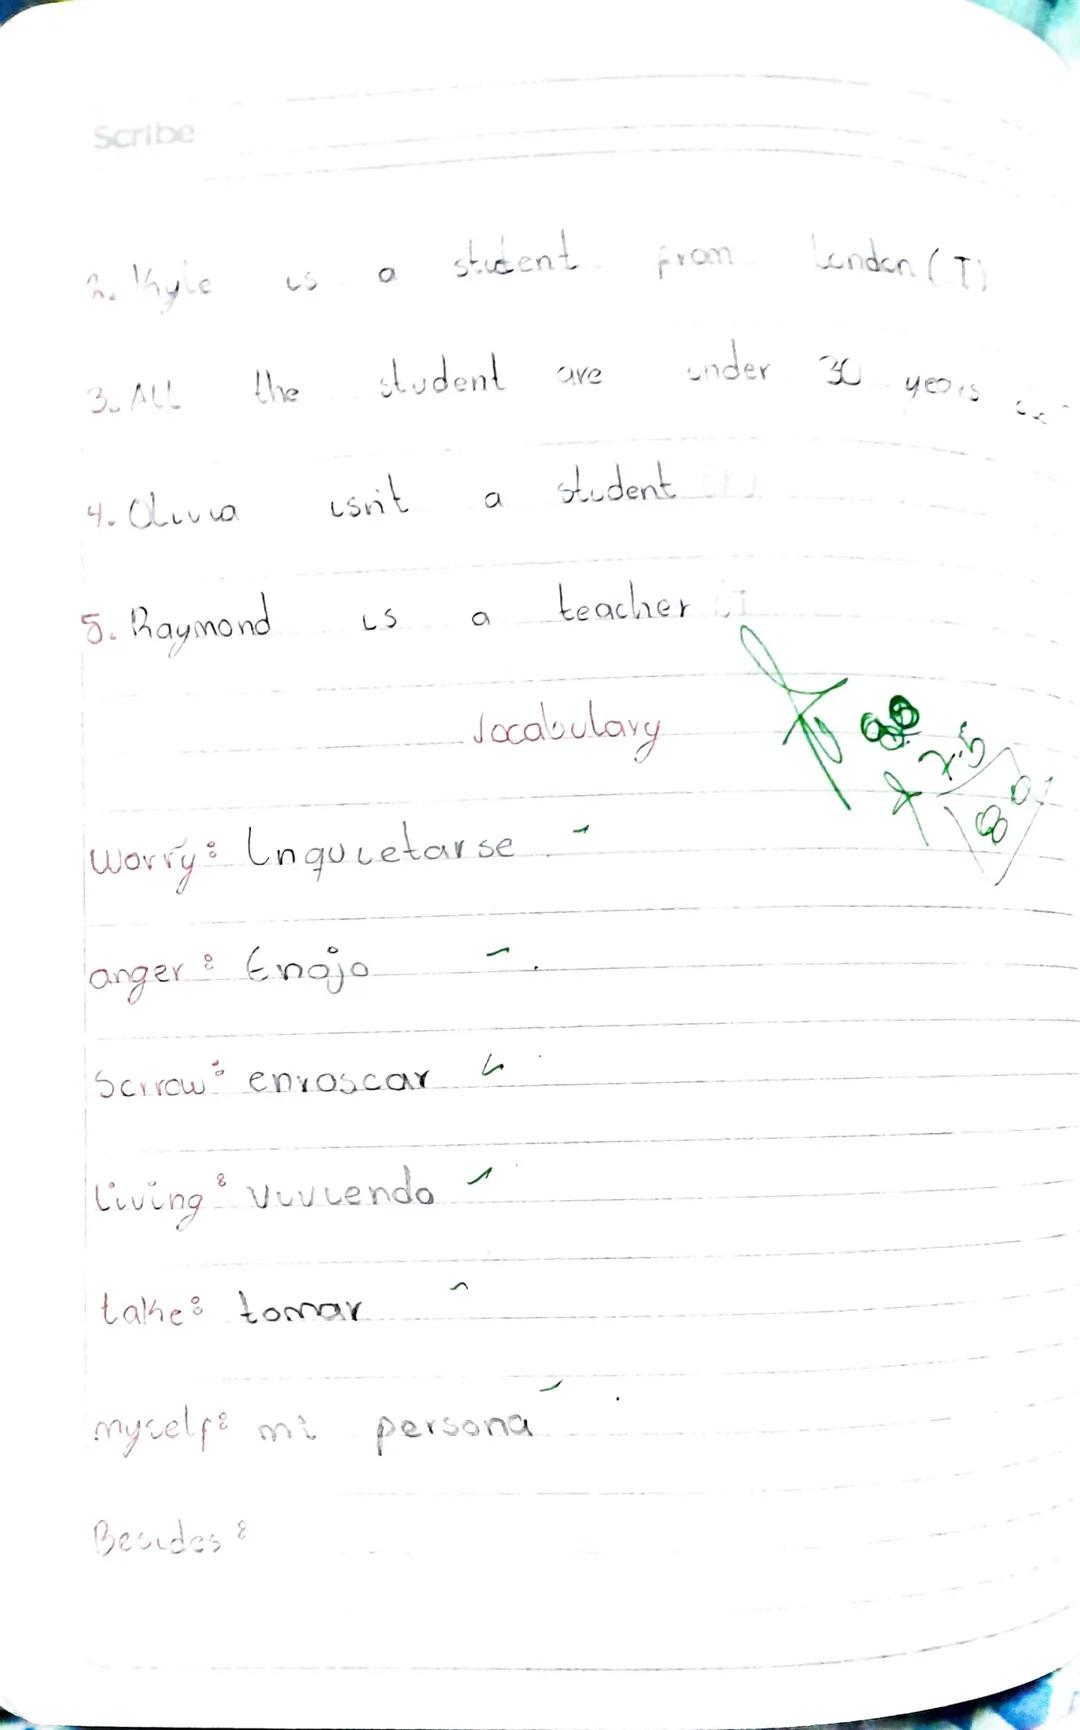 Scribe
2. Kyle is a student from London (T)
3. All the student are under 30 years
4. Olivia isn't a student
5. Raymond is a teacher
Vocabulary
7.5
8
worry: Inquietarse
anger: Enojo
Scrrow: enroscar
living: viviendo
take: tomar
myself: mi persona
Besides: